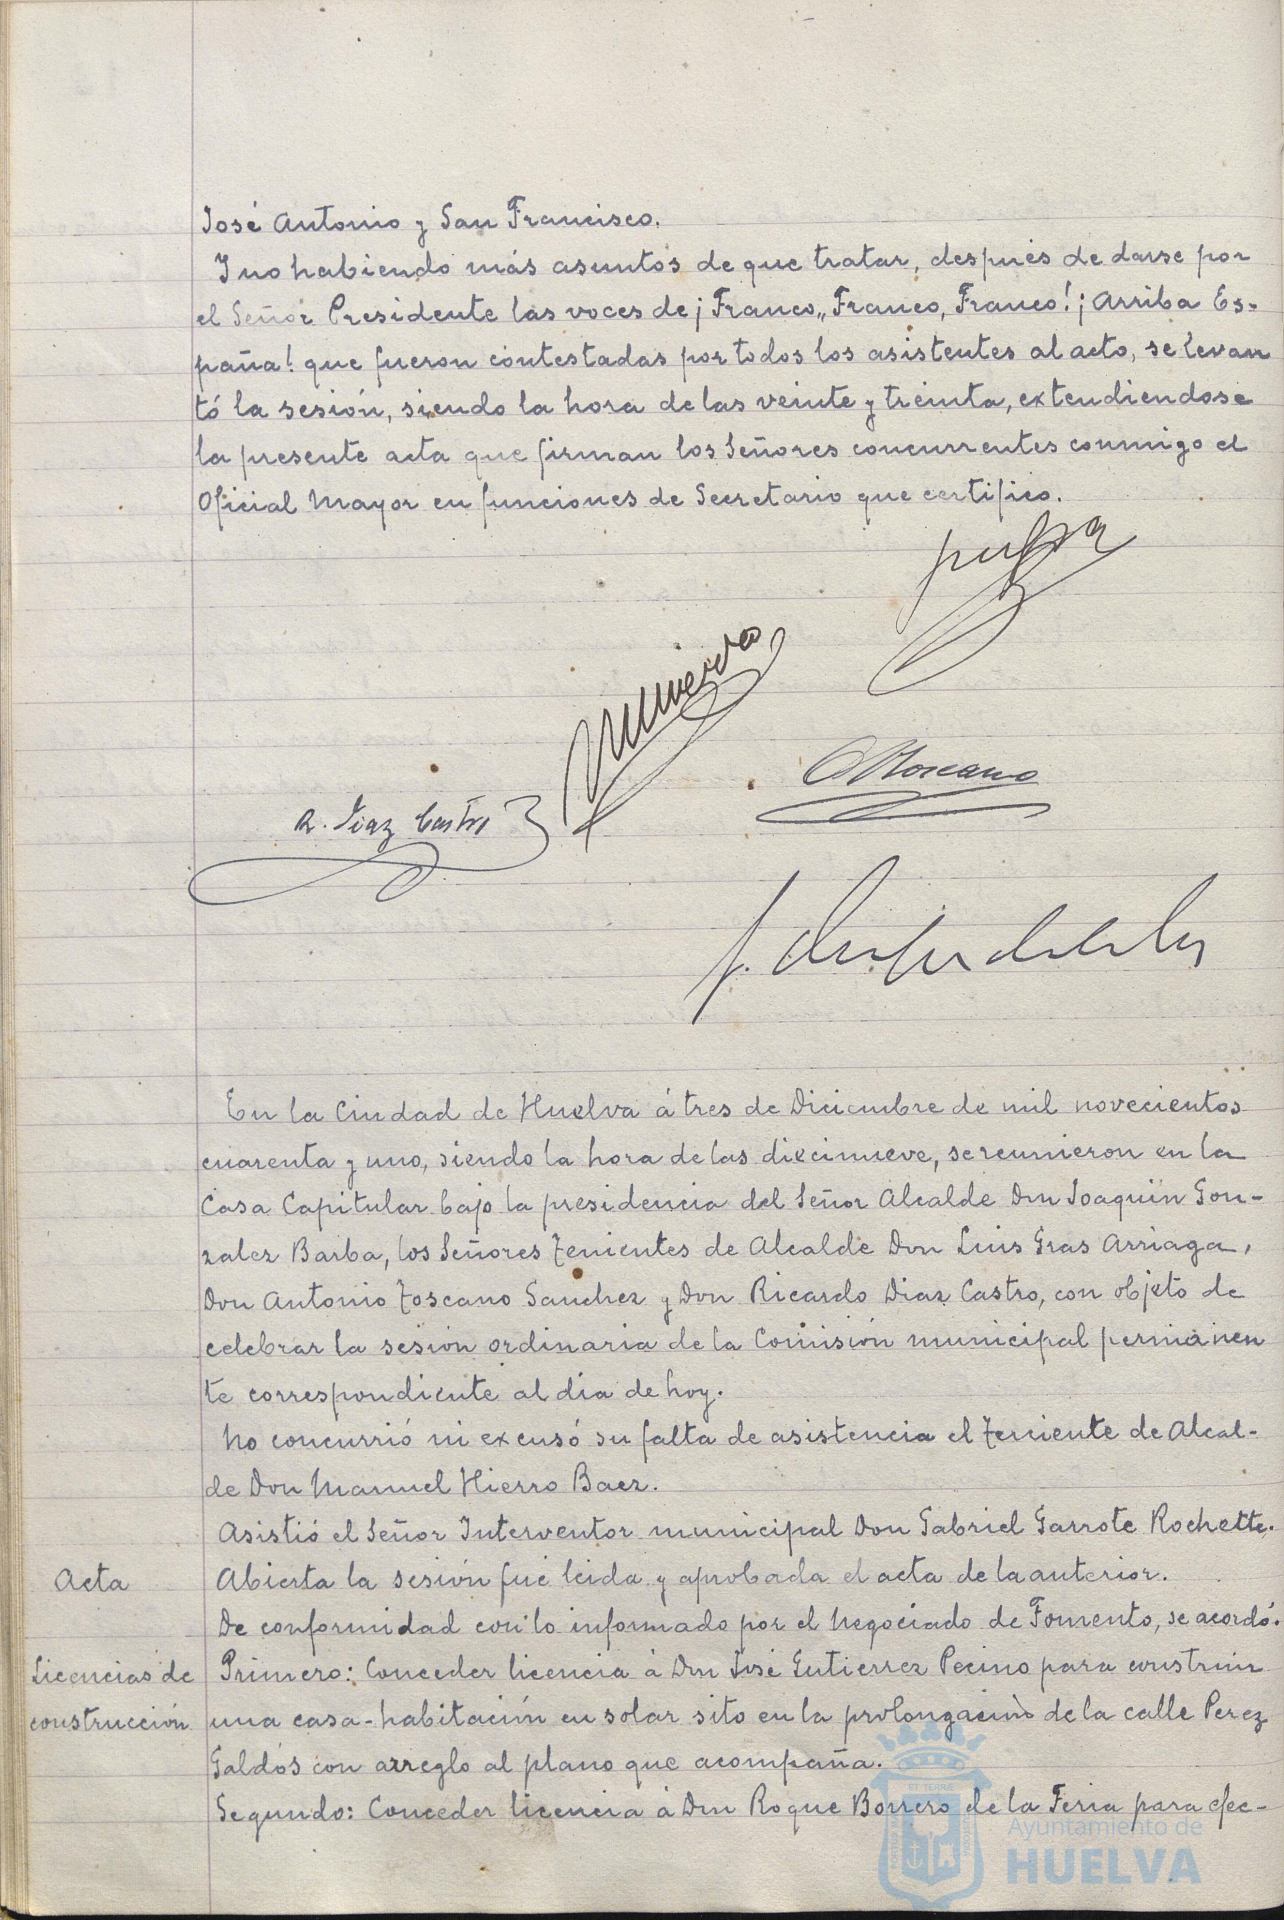 José Antonio y San Francisco.
Y no habiendo más asuntos de que tratar, después de darse por
el Señor Presidente las voces de ¡Franco,, Franco, Franco! ¡Arriba Es-
paña! que fueron contestadas por todos los asistentes al acto, se levan
tó la sesión, siendo la hora de las veinte y treinta, extendiendose
la presente acta que firman los Señores concurrentes conmigo el
Oficial Mayor en funciones de Secretario que certifico.
R. Diaz Castro
A Toscano
En la Ciudad de Huelva á tres de Diciembre de mil novecientos
cuarenta y uno, siendo la hora de las diecinueve, se reunieron en la
Casa Capitular bajo la presidencia del Señor Alcalde Don Joaquin Gon-
zalez Barba, los Señores Tenientes de Alcalde Don Luis Gras Arriaga,
Don Antonio Toscano Sanchez y Don Ricardo Diaz Castro, con objeto de
celebrar la sesión ordinaria de la Comisión municipal permanen
te correspondiente al dia de hoy.
No concurrió ni excusó su falta de asistencia el Teniente de Alcal-
de Don Manuel Hierro Baez.
Asistió el Señor Interventor municipal Don Gabriel Garrote Rochette.
Acta
Abierta la sesión fué leida y aprobada el acta de la anterior.
De conformidad con lo informado por el Negociado de Fomento, se acordó.
Licencias de
construcción
Primero: Conceder licencia á Don José Gutierrez Pecino para construir
una casa-habitación en solar sito en la prolongación de la calle Perez
Galdós con arreglo al plano que acompaña.
Segundo: Conceder licencia á Don Roque Borrero de la Feria para efec-
Ayuntamiento de
HUELVA